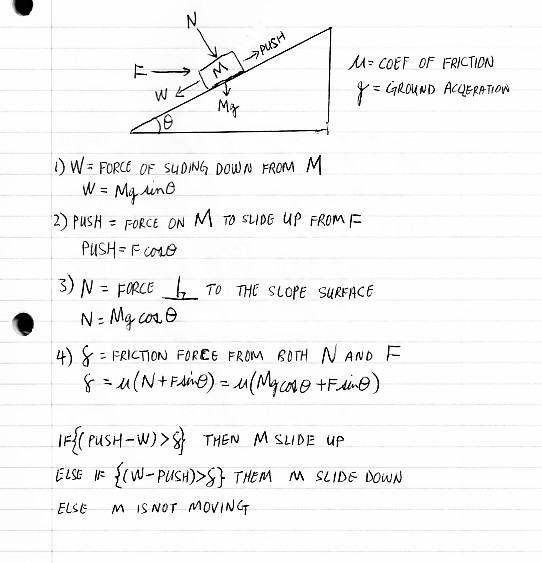 N
PUSH
F
M
W
Mg
θ
μ = COEF OF FRICTION
g = GROUND ACCERATION
1) W = FORCE OF SLIDING DOWN FROM M
W = Mg sinθ
2) PUSH = FORCE ON M TO SLIDE UP FROM F
PUSH = F cosθ
3) N = FORCE ⊥ TO THE SLOPE SURFACE
N = Mg cosθ
4) f = FRICTION FORCE FROM BOTH N AND F
f = μ(N+Fsinθ) = μ(Mgcosθ+Fsinθ)
IF{(PUSH-W)>f} THEN M SLIDE UP
ELSE IF {(W-PUSH)>f} THEM M SLIDE DOWN
ELSE M IS NOT MOVING